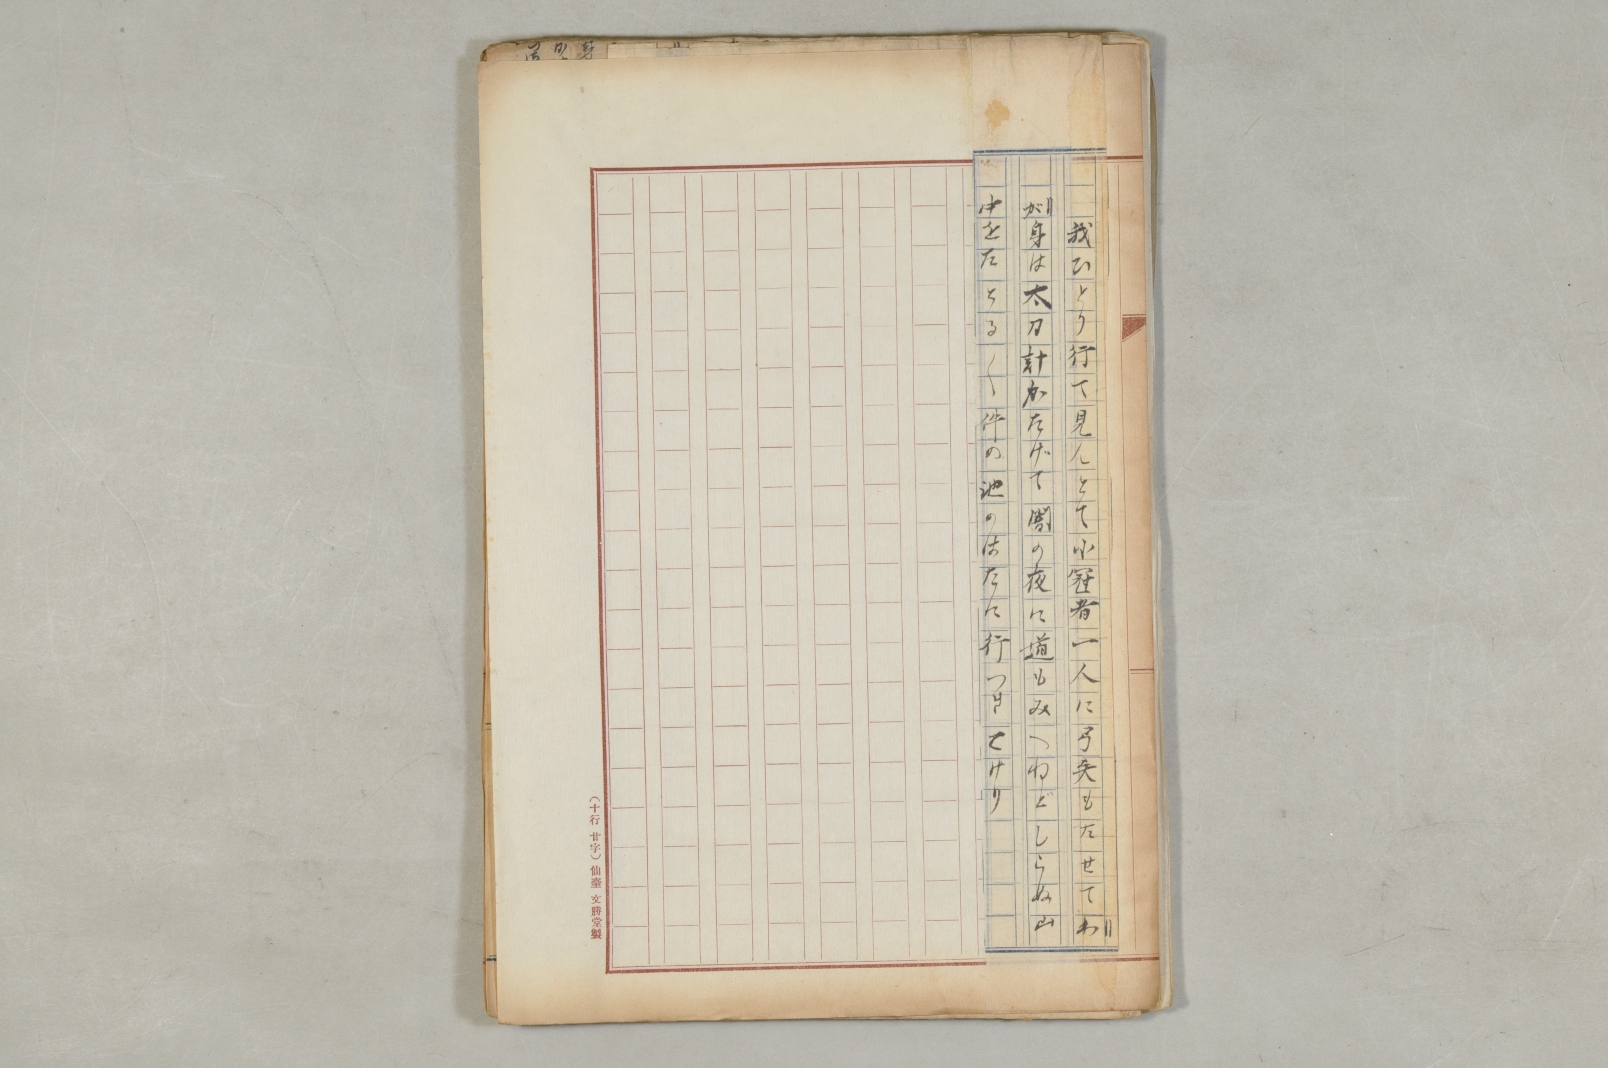 我ひとり行て見んとて小冠者一人に弓矢もたせてわ
が身は太刀計かたげて闇の夜に道もみへねどしらぬ山
中をたどる〱件の池のはたに行つきにけり
(十行 廿字) 仙臺 文勝堂製